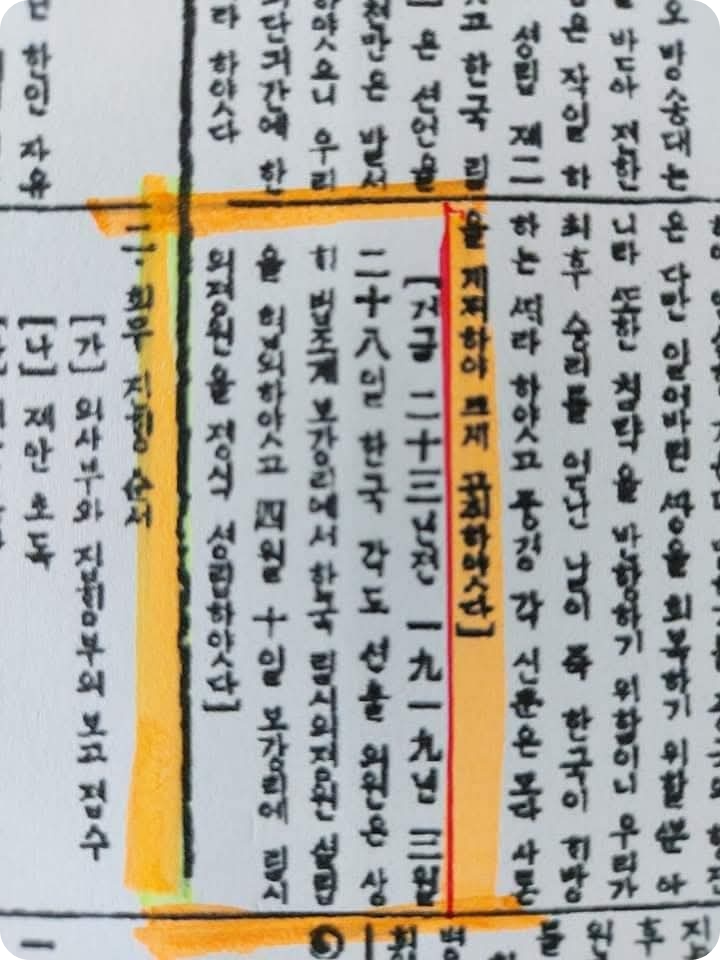 오 방송대는
바드아 전한
은 작일 하
성립 제二
고 한국 림
은 선언을
천만은 발서
하얏으니 우리
단긔간에 한
라 하얏다
한인 자유
은 다만 일허바린 것을 회복하기 위할 뿐 아
니라 또한 침략을 반항하기 위함이니 우리가
최후 승리를 얻난 날이 즉 한국이 해방
하는 라 하얏고 중경 각 신문은 모다 사론
을 게재하야 크게 고취하얏다]
[거금 二十三년전 一九一九년 三월
二十八일 한국 각도 선출 의원은 상
히 법조계 보강리에서 한국 림시의정원 설립
을 협의하얏고 四월 十일 보강리에 림시
의정원을 정식 성립하얏다]
二. 회무 진행 순서
[가] 의사부와 집행부의 보고 접수
[나] 제안 초독